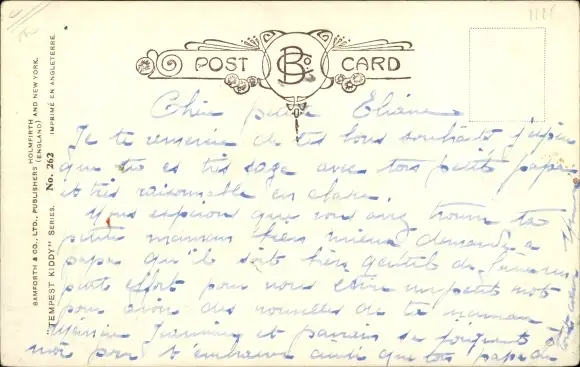 POST CARD
B Co.
BAMFORTH & CO., LTD., PUBLISHERS HOLMFIRTH (ENGLAND) AND NEW YORK.
IMPRIMÉ EN ANGLETERRE.
"TEMPEST KIDDY" SERIES. No. 262
Chère petite Eliane
Je te remercie de tes bons souhaits j'espère
que tu es très sage avec ton petit papa
et très raisonnable en classe.
Nous espérons que vous avez trouvé ta
petite maman bien mieux demande a
papa qu'il soit bien gentil de faire un
petit effort pour nous écrire un petit mot
pour avoir des nouvelles de ta maman
Jeannine et parrain se joignent
moi pour t'embrasser ainsi que ton papa de